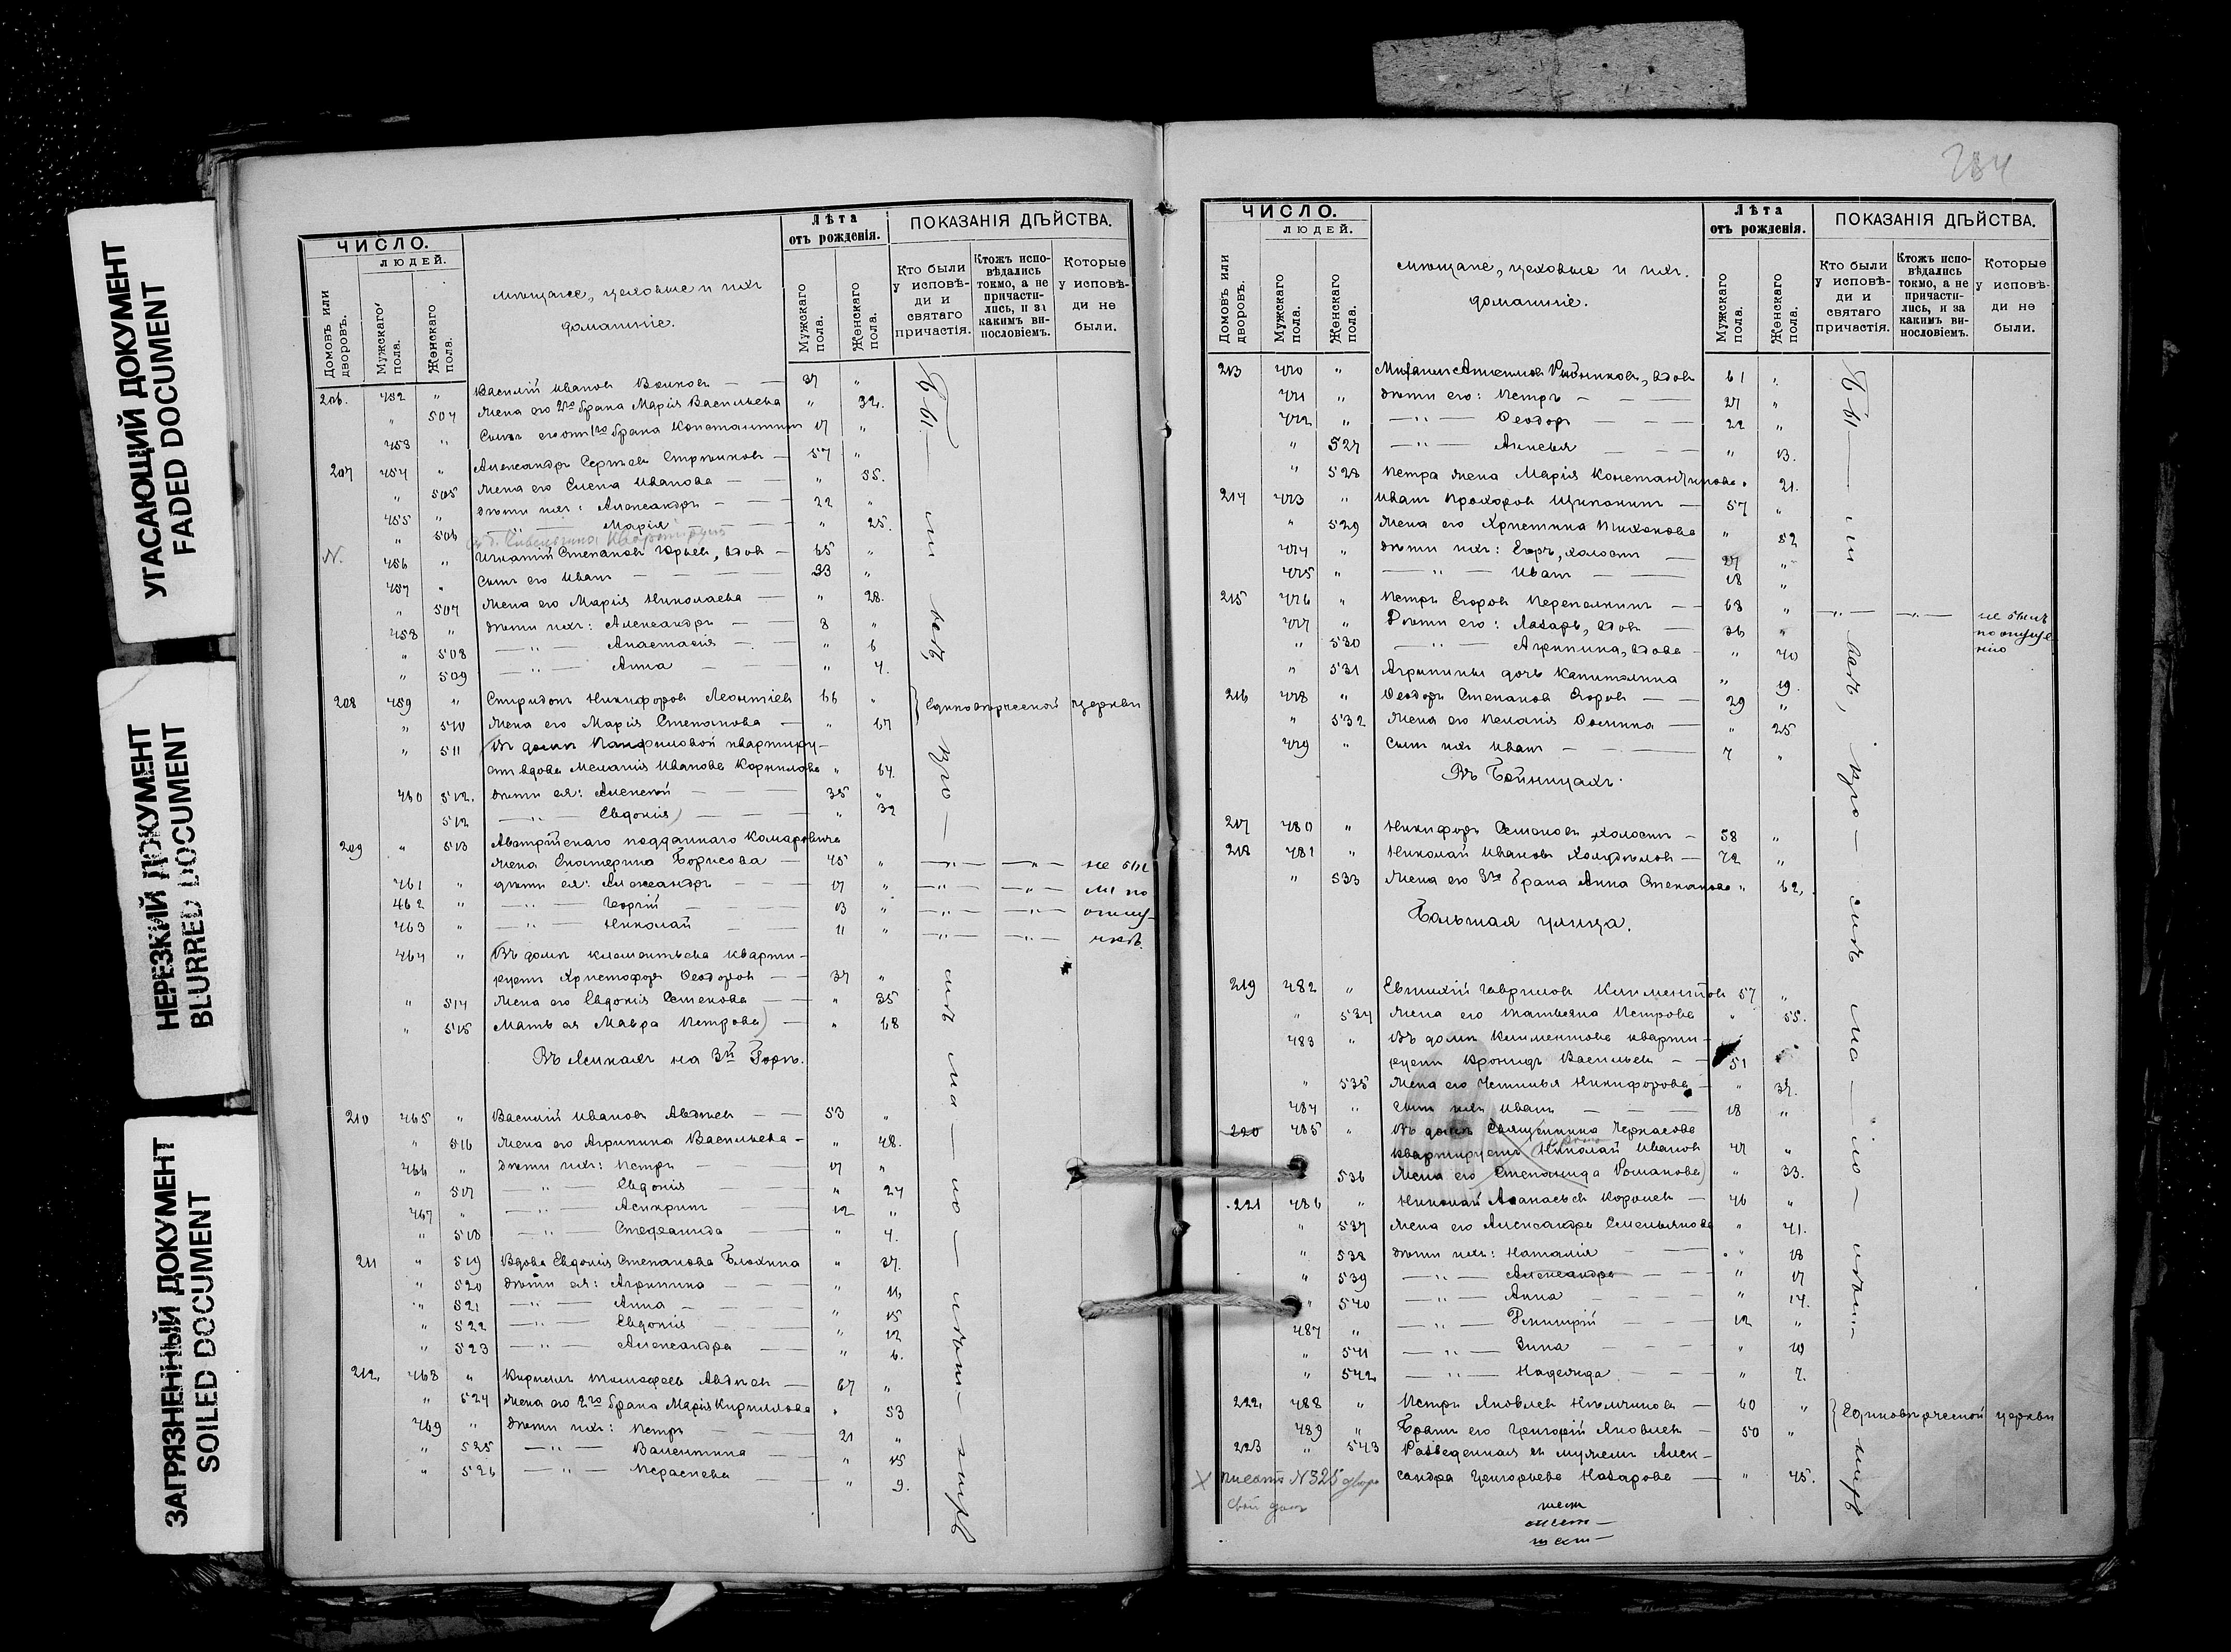 УГАСАЮЩИЙ ДОКУМЕНТ
FADED DOCUMENT
НЕРЕЗКИЙ ДОКУМЕНТ
BLURRED DOCUMENT
ЗАГРЯЗНЕННЫЙ ДОКУМЕНТ
SOILED DOCUMENT
ЧИСЛО.
ЛЮДЕЙ.
Домовъ или дворовъ.
Мужскаго пола.
Женскаго пола.
мѣщане, цеховые и ихъ
домашніе.
Лѣта
отъ рожденія.
Мужскаго пола.
Женскаго пола.
ПОКАЗАНІЯ ДѢЙСТВА.
Кто были у исповѣди и святаго причастія.
Ктожъ исповѣдались токмо, а не причастились, и за какимъ винословіемъ.
Которые у исповѣди не были.
206. 452 " Василій Иванов Волковъ — 37 "
" 504 Жена его 2го брака Марія Васильева " 32.
453 " Сынъ его отъ 1го брака Константинъ 17 "
207 454 " Александръ Сергѣевъ — 57 "
" 505 Жена его Елена Иванова — " 55.
455 " Дѣти ихъ: Александръ — 22 "
" 506 — " — Марія — " 25.
N. 456 " Игнатій Степановъ Юрьевъ, вдовъ — 65 "
457 " Сынъ его Иванъ — 33 "
" 507 Жена его Марія Николаева — " 28.
458 " Дѣти ихъ: Александръ — 8 "
" 508 — " — Анастасія — " 6
" 509 — " — Анна — " 4.
208 459 " Спиридонъ Никифоровъ Леонтьевъ 66 " Единовѣрческой церкви
" 510 Жена его Марія Степанова — " 67
" 511 (Въ домѣ Панфиловой квартиру-
етъ вдова Меланія Иванова Корнилова " 64.
460 512. Дѣти ея: Алексѣй — 35 "
512 — " — Евдокія) — " 32
209 " 513 Австрійскаго подданнаго Комаровича
жена Екатерина Борисова — 45 " — " — — " — не бы
461 " дѣти ея: Александръ — 17 " — " — — " — ли по
462 " — " — Георгій 13 " — " — — " — отлу-
463 " — " — Николай 11 " — " — — " — чкѣ.
464 " (Въ домѣ Климентьева кварти-
руетъ Христофоръ Ѳеодоровъ — 37 "
" 514 Жена его Евдокія — " 35
" 515 Мать ея Мавра Петрова) — " 68
Въ на 3й Горѣ.
210 465 " Василій Ивановъ Авдѣевъ — 53 "
" 516 Жена его Агрипина Васильева — " 48.
466 " Дѣти ихъ: Петръ — 17 "
" 517 — " — Евдокія — " 24
467 " — " — Асинкритъ — 12 "
" 518 — " — Степанида " 4.
211 " 519 Вдова Евдокія Степанова Блохина " 37.
" 520 Дѣти ея: Агрипина — " 16
" 521 — " — Анна — " 15
" 522 — " — Евдокія — " 12
" 523 — " — Александра — " 6.
212. 468 " Кириллъ Тимофеевъ Авдѣевъ — 67 "
" 524 Жена его 2го брака Марія Кириллова " 53
469 " Дѣти ихъ: Петръ — 21 "
" 525 — " — Валентина — " 15
" 526 — " — Параскева — " 9.
284
ЧИСЛО.
ЛЮДЕЙ.
Домовъ или дворовъ.
Мужскаго пола.
Женскаго пола.
мѣщане, цеховые и ихъ
домашніе.
Лѣта
отъ рожденія.
Мужскаго пола.
Женскаго пола.
ПОКАЗАНІЯ ДѢЙСТВА.
Кто были у исповѣди и святаго причастія.
Ктожъ исповѣдались токмо, а не причастились, и за какимъ винословіемъ.
Которые у исповѣди не были.
213 470 " вдовъ 61 "
471 " Дѣти его: Петръ — 27 "
472 " — " — Ѳеодоръ — 22 "
" 527 — " — — " 13.
" 528 Петра жена Марія Константинова " 21.
214 473 " Иванъ Прохоровъ — 57 "
" 529 Жена его Христина Тихонова " 52
474 " Дѣти ихъ: Егоръ, холостъ — 27 "
475 " — " — Иванъ — 18 "
215 476 " Петръ Егоровъ Перепелкинъ — 68 " — " — — " — не былъ
477 " Дѣти его: Лазарь, вдовъ — 36 " по опуще
" 530 — " — Агрипина, вдова — " 40 нію
" 531 Агрипины дочь Капитолина " 19.
216 478 " Ѳеодоръ Степановъ Егоровъ — 29 "
" 532 Жена его Меланія Ѳомина — " 25
479 " Сынъ ихъ Иванъ — 7 "
Въ Бойницахъ.
217 480 " Никифоръ холостъ — 58 "
218 481 " Николай Ивановъ — 72 "
" 533 Жена его 3го брака Анна Степанова " 62.
Большая улица.
219 482 " Евтихій Гавриловъ Климентовъ 57 "
" 534 Жена его Татьяна Петрова " 55.
483 " Въ домѣ Климентова кварти-
руетъ Кронидъ Васильевъ — 51 "
" 535 Жена его Никифорова — " 37.
484 " Сынъ ихъ Иванъ — 18 "
220 485 " Въ домѣ Священника Черкасова
квартируетъ (Николай Ивановъ 47 "
536 Жена его Степанида Романова) " 33.
221 486 " Николай Аѳанасьевъ Королевъ — 46 "
" 537 Жена его Александра Емельянова " 41.
" 538 Дѣти ихъ: Наталія — " 18
" 539 — " — Александра — " 17
" 540 — " — Анна — " 14.
487 " — " — — 12 "
" 541 — " — Зина — " 10
" 542 — " — Надежда — " 7.
222. 488 " Петръ Яковлевъ — 60 " Единовѣрческой церкви
489 " Братъ его Григорій Яковлевъ — 50 "
223 " 543 Разведенная съ мужемъ Алек-
сандра Григорьева Назарова — " 45.
X писать N 325
свой домъ